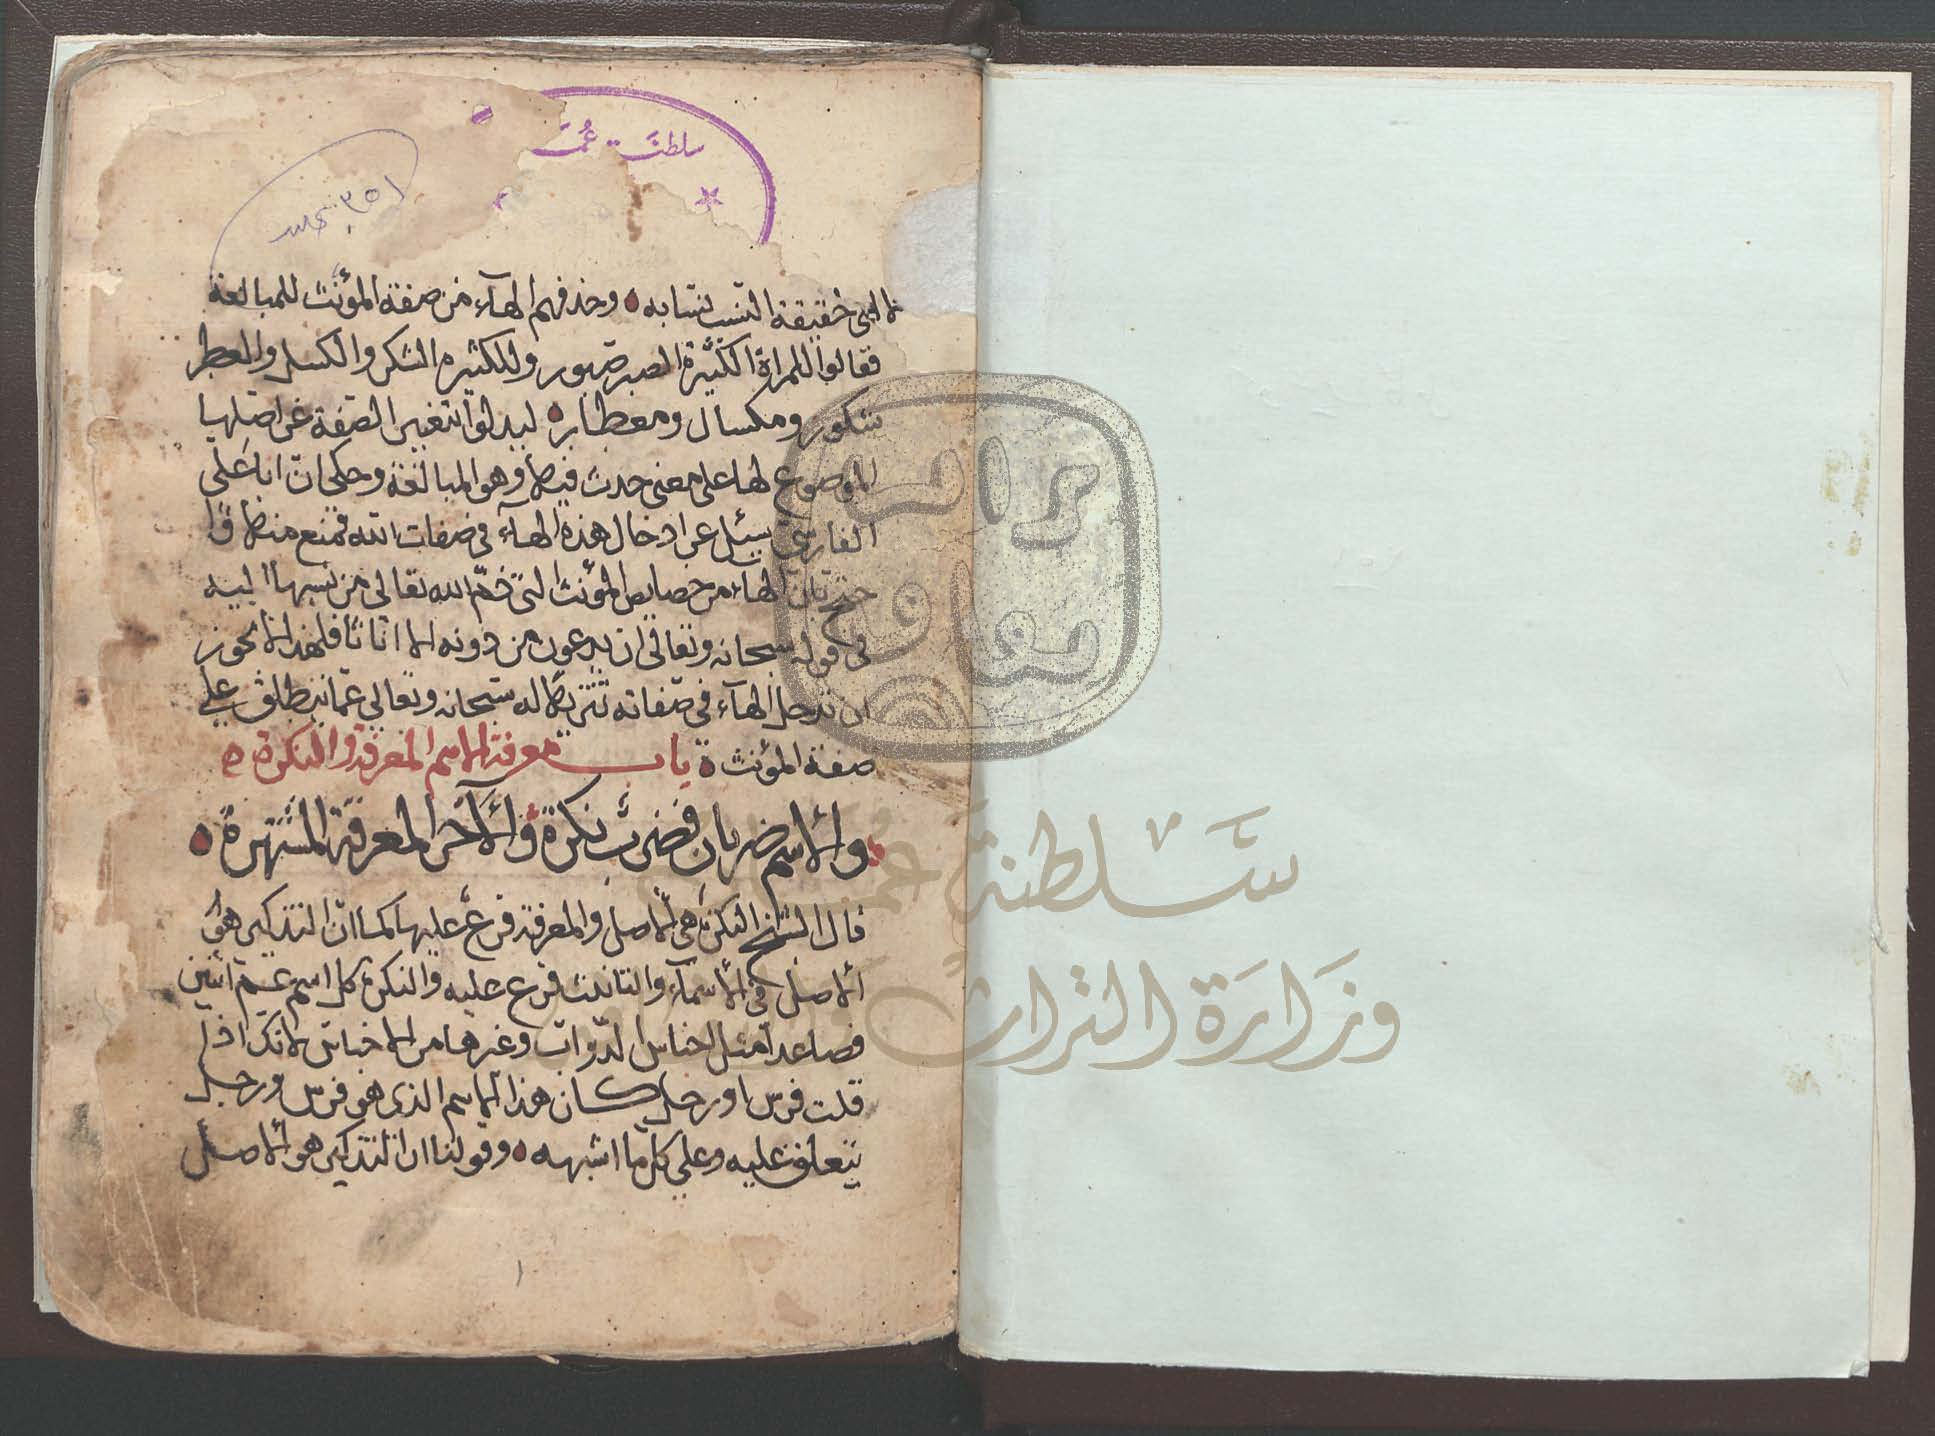 سلطنة عُمَ
٣٥١ نحاسد
لا لمعنى حقيقة التسبتسابه ۝ وحذفهم الهآء من صفة المؤنث للمبالغة
فقالوا للمراة الكثيرة الصبر صبور وللكثيرة الشكر والكسل والعطر
شكور ومكسال ومعطار ۝ ليدلوا بتغيير الصّفة عن اصلها
الموضوع لها على معنى حدث فيها وهو المبالغة وحكي انّ ابا علي
الفارسي سئل عن ادخال هذه الهآء في صفات الله فمنع منها وا
حتج بان الهاء من خصايص المؤنث التي ذمّ الله تعالى من نسبها اليه
في قوله سبحانه وتعالى ان يدعون من دونه الا اناثا فلهذا لا يجوز
ان تدخل الهآء في صفاته تنزيها له سبحانه وتعالى عمّا ينطلق على
صفة المؤنث ۝ باب معرفة الاسم المعرفة والنكرة ۝
والاسم ضربان فضرب نكرة والآخر المعرفة المشتهرة ۝
قال الشيخ النكرة هي الاصل والمعرفة فرع عليها كما انّ التذكير هو
الاصل في الاسمآء والتانيث فرع عليه والنكرة كل اسم عم اثنين
فصاعدا مثل اجناس الدّواب وغيرها من الاجناس لانك اذا
قلت فرس او رجل كان هذا الاسم الذي هو فرس ورجل
ينطلق عليه وعلى كل ما اشبهه ۝ وقولنا ان التذكير هو الاصل
١
سَلطنة عُمَان
وزَارَة التراث و